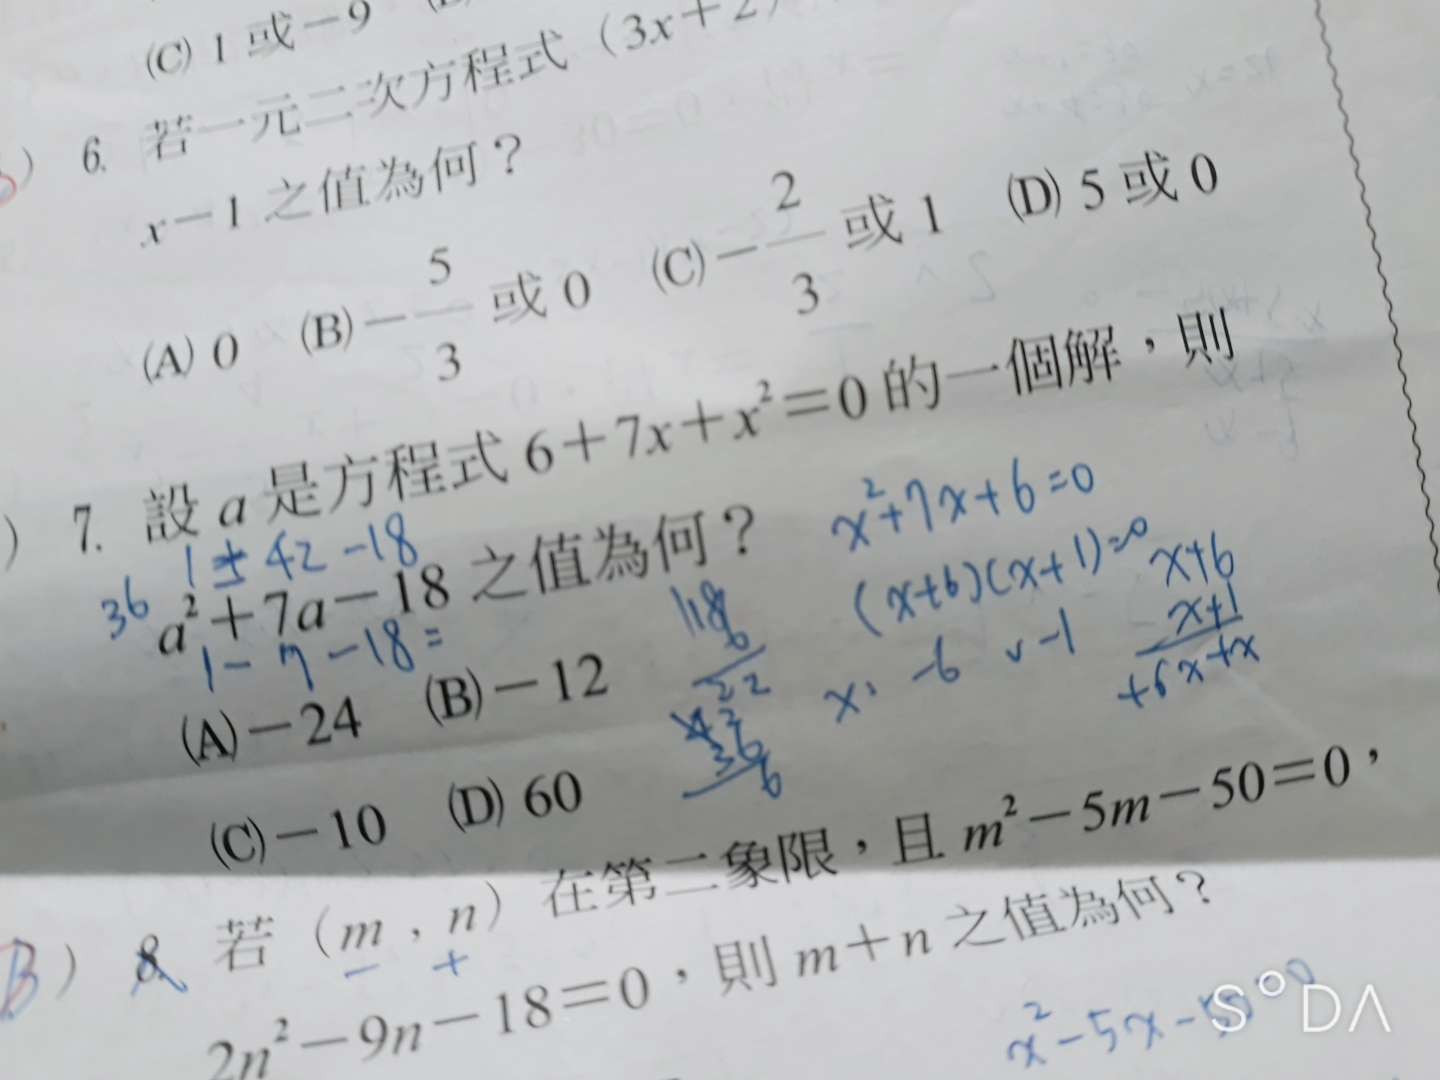 (C) 1 或 －9
6. 若一元二次方程式（3x＋2）
x－1 之值為何？
(A) 0 (B) －5/3 或 0 (C) －2/3 或 1 (D) 5 或 0
7. 設 a 是方程式 6＋7x＋x²＝0 的一個解，則
x²+7x+6=0
36 1± 42 -18
a²＋7a－18 之值為何？
(x+6)(x+1)=0
x+6
x+1
+6x+x
1- 7 -18=
x: -6 v -1
(A)－24 (B)－12
42
36
6
(C)－10 (D) 60
B) 8. 若（m，n）在第二象限，且 m²－5m－50＝0，
- +
2n²－9n－18＝0，則 m＋n 之值為何？
x²-5x-50=0
S°DΛ